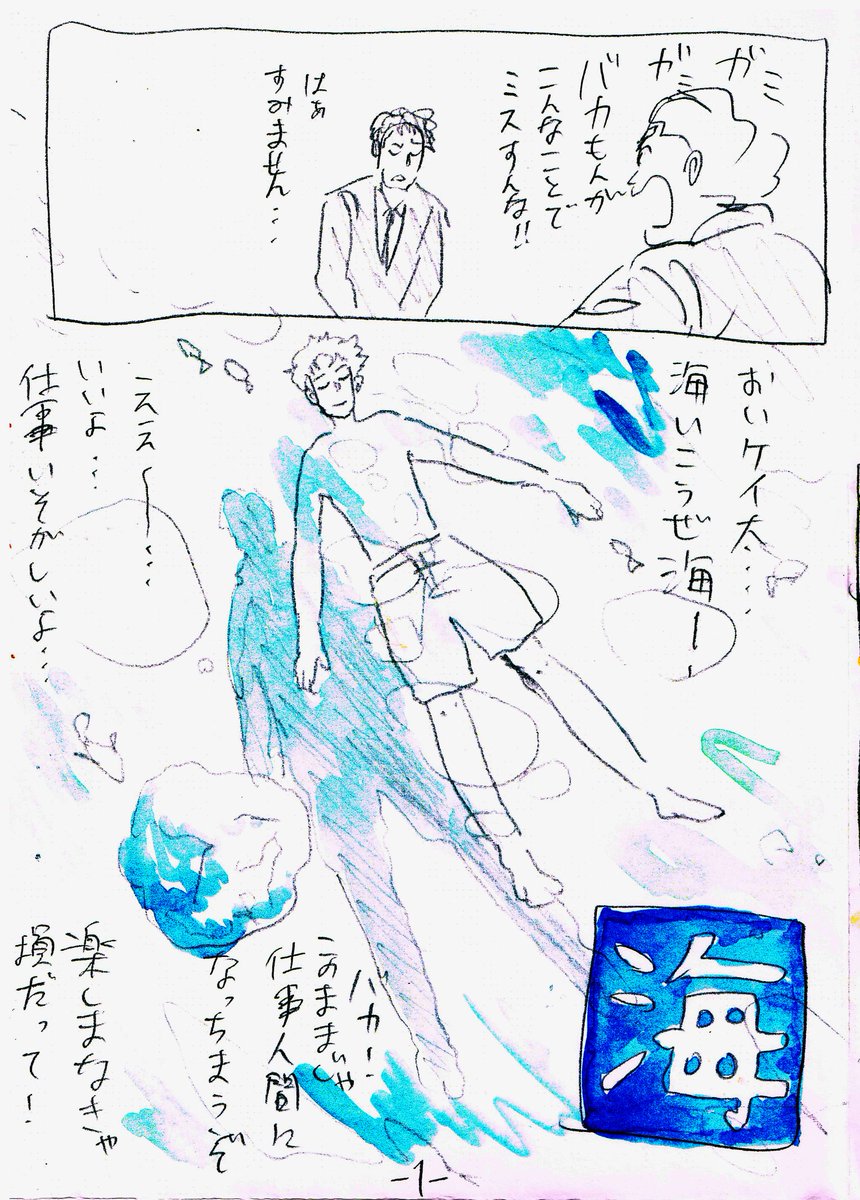 ガミ
ガミ
バカもんが
こんなことで
ミスすんな!!
はぁ
すみません・・・
おいケイ太・・・・
海いこうぜ海ー
ええ〜・・・
いいよ・・・
仕事いそがしいよ・・・
バカ!
このままじゃ
仕事人間に
なっちまうぞ
楽しまなきゃ
損だって!
海
-1-